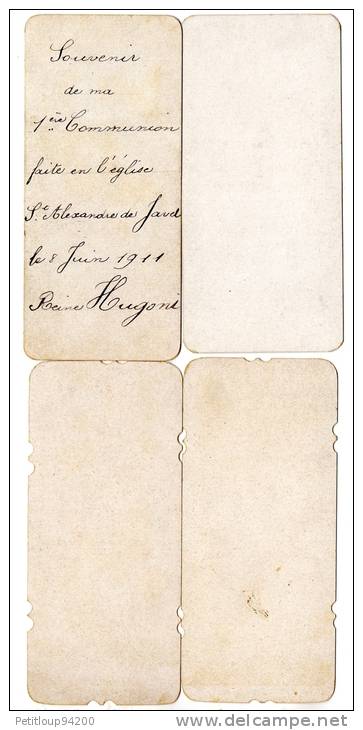 Souvenir
de ma
1ère Communion
faite en l'église
St Alexandre de Javel
le 8 Juin 1911
Reine Hugoni
Petitloup94200
www.delcampe.net